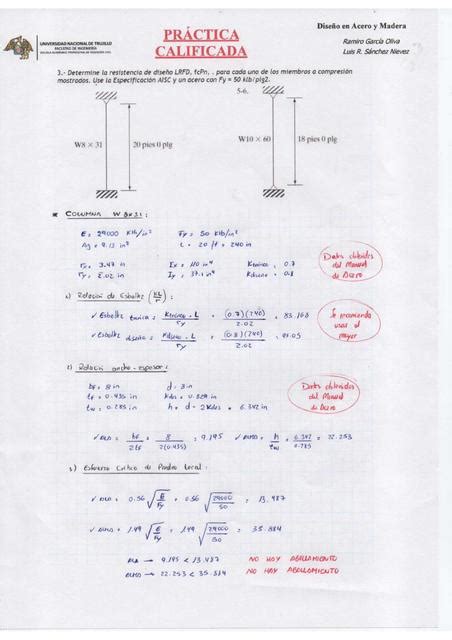 Diseño en Acero y Madera
PRÁCTICA
CALIFICADA
UNIVERSIDAD NACIONAL DE TRUJILLO
FACULTAD DE INGENIERÍA
Ramiro García Oliva
Luis R. Sánchez Nievez
3.- Determine la resistencia de diseño LRFD, fcPn, . para cada uno de los miembros a compresión
mostrados. Use la Especificación AISC y un acero con Fy = 50 klb/plg2.
5-6.
W8 × 31
20 pies 0 plg
W10 × 60
18 pies 0 plg
* COLUMNA W 8x31:
E = 29000 Klb/in² Fy = 50 klb/in²
Ag = 9.13 in² L = 20 ft = 240 in
rx = 3.47 in Ix = 110 in⁴ Kteórico = 0.7
ry = 2.02 in Iy = 37.1 in⁴ Kdiseño = 0.8
Datos obtenidos
del Manual
de Acero
Relación de Esbeltez (KL/r) :
✓ Esbeltez teórica = Kteórico . L / ry = (0.7)(240) / 2.02 = 83.168
✓ Esbeltez diseño = Kdiseño . L / ry = (0.8)(240) / 2.02 = 95.05
Se recomienda
usar el
mayor
2) Relación ancho - espesor :
bf = 8 in d = 8 in
tf = 0.435 in kdes = 0.829 in
tw = 0.285 in h = d - 2kdes = 6.342 in
Datos obtenidos
del Manual
de Acero
= bf / 2tf = 8 / 2(0.435) = 9.195 = h / tw = 6.342 / 0.285 = 22.253
3) Esfuerzo Crítico de Pandeo Local :
= 0.56 √E/Fy = 0.56 √29000/50 = 13.487
= 1.49 √E/Fy = 1.49 √29000/50 = 35.884
→ 9.195 < 13.487 NO HAY ABOLLAMIENTO
→ 22.253 < 35.884 NO HAY ABOLLAMIENTO